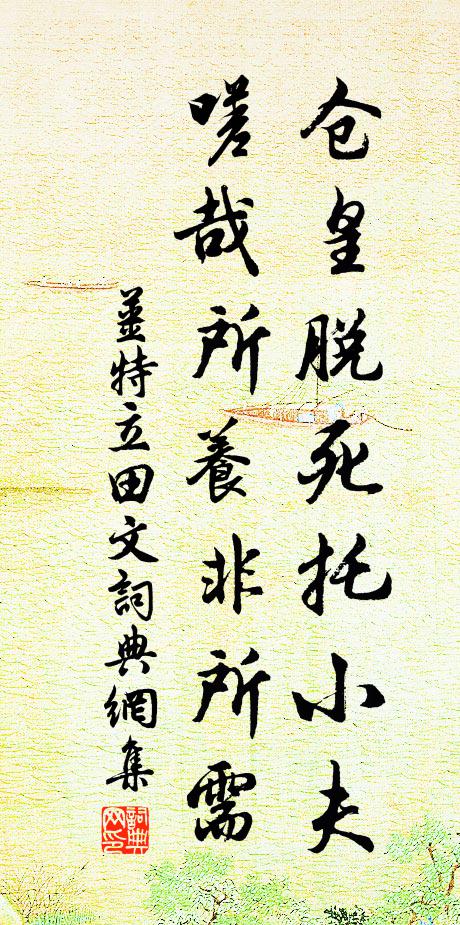 仓皇脱死托小夫
嗟哉所養非所需
姜特立田文詞典網集
詞典網印